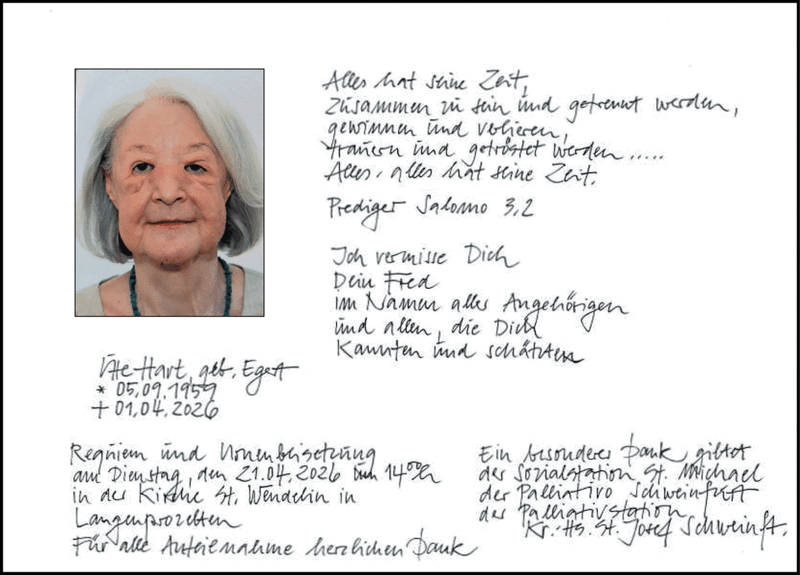 Alles hat seine Zeit,
zusammen zu sein und getrennt werden,
gewinnen und verlieren,
trauern und getröstet werden.....
Alles, alles hat seine Zeit.
Prediger Salomo 3,2
Ich vermisse Dich
Dein Fred
im Namen aller Angehörigen
und allen, die Dich
kannten und schätzten
Ute Hart, geb. Egert
* 05.09.1959
† 01.04.2026
Requiem und Urnenbeisetzung
am Dienstag, den 21.04.2026 um 14ººh
in der Kirche St. Wendelin in
Langenprozelten
Für alle Anteilnahme herzlichen Dank
Ein besonderer Dank giltet
der Sozialstation St. Michael
der Palliativo Schweinfurt
der Palliativstation
Kr.-Hs. St. Josef Schweinft.